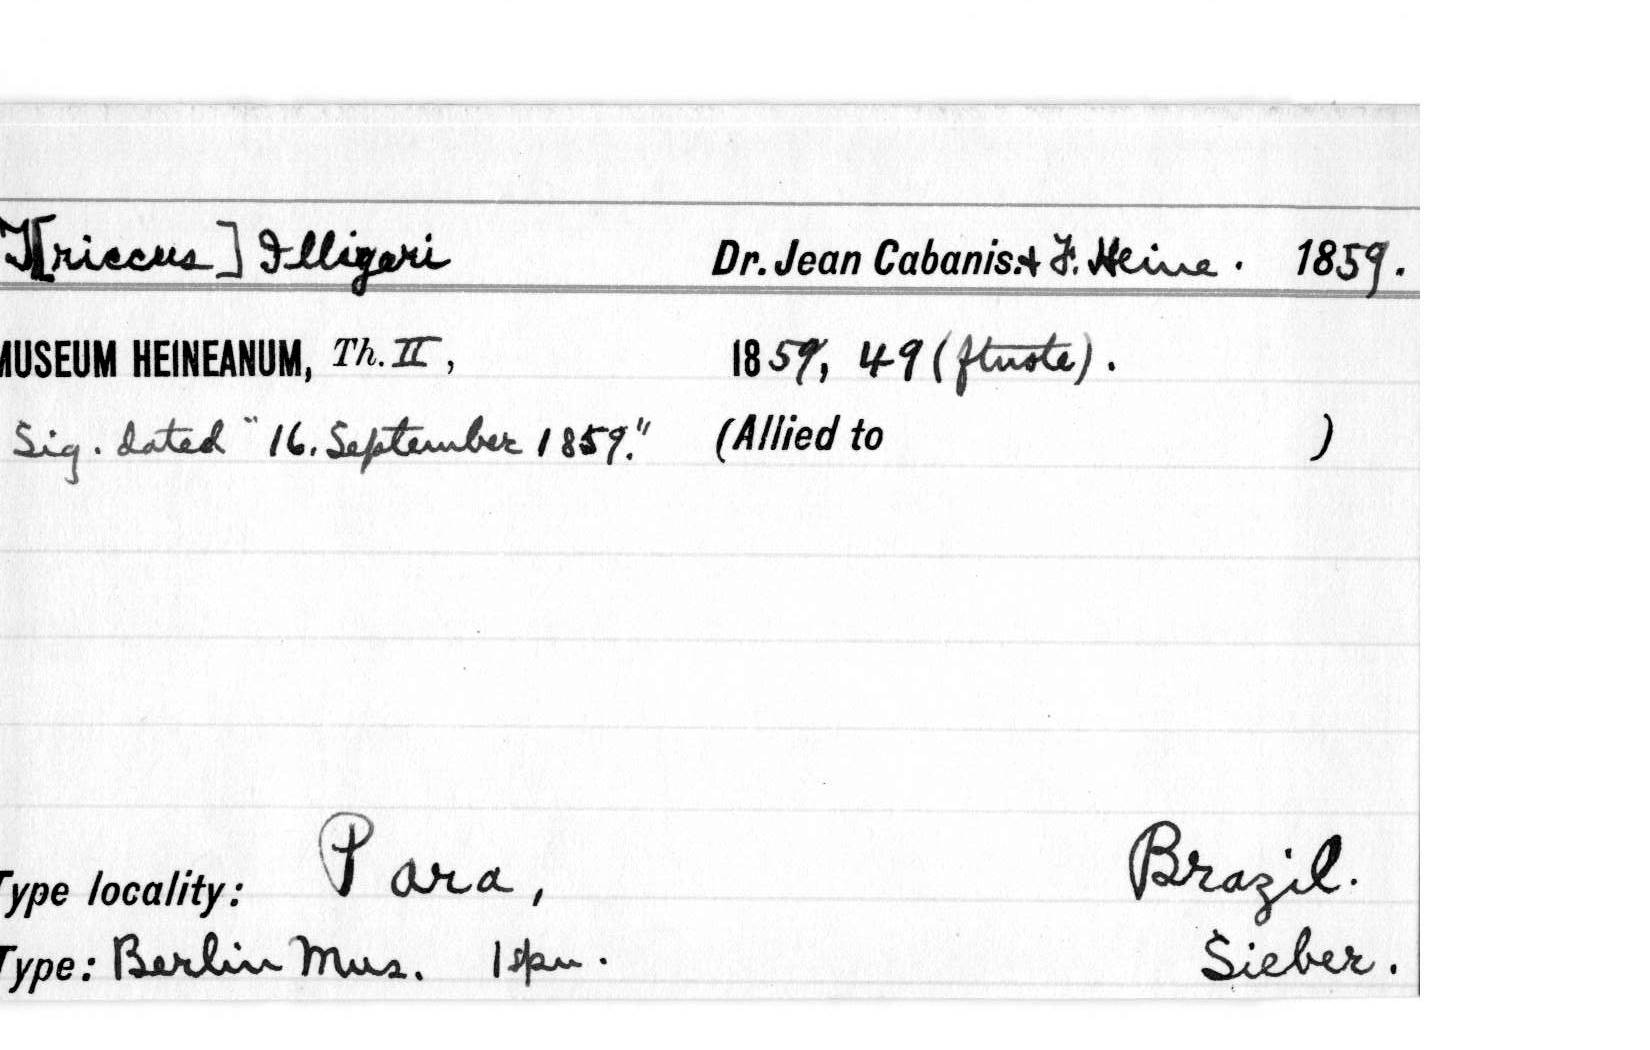 T[riccus] Illigeri Dr. Jean Cabanis. & F. Heine. 1859.
MUSEUM HEINEANUM, Th. II, 1859, 49 (ftnote).
Sig. dated "16. September 1859." (Allied to )
Type locality: Para, Brazil.
Type: Berlin Mus. 1 spn. Sieber.